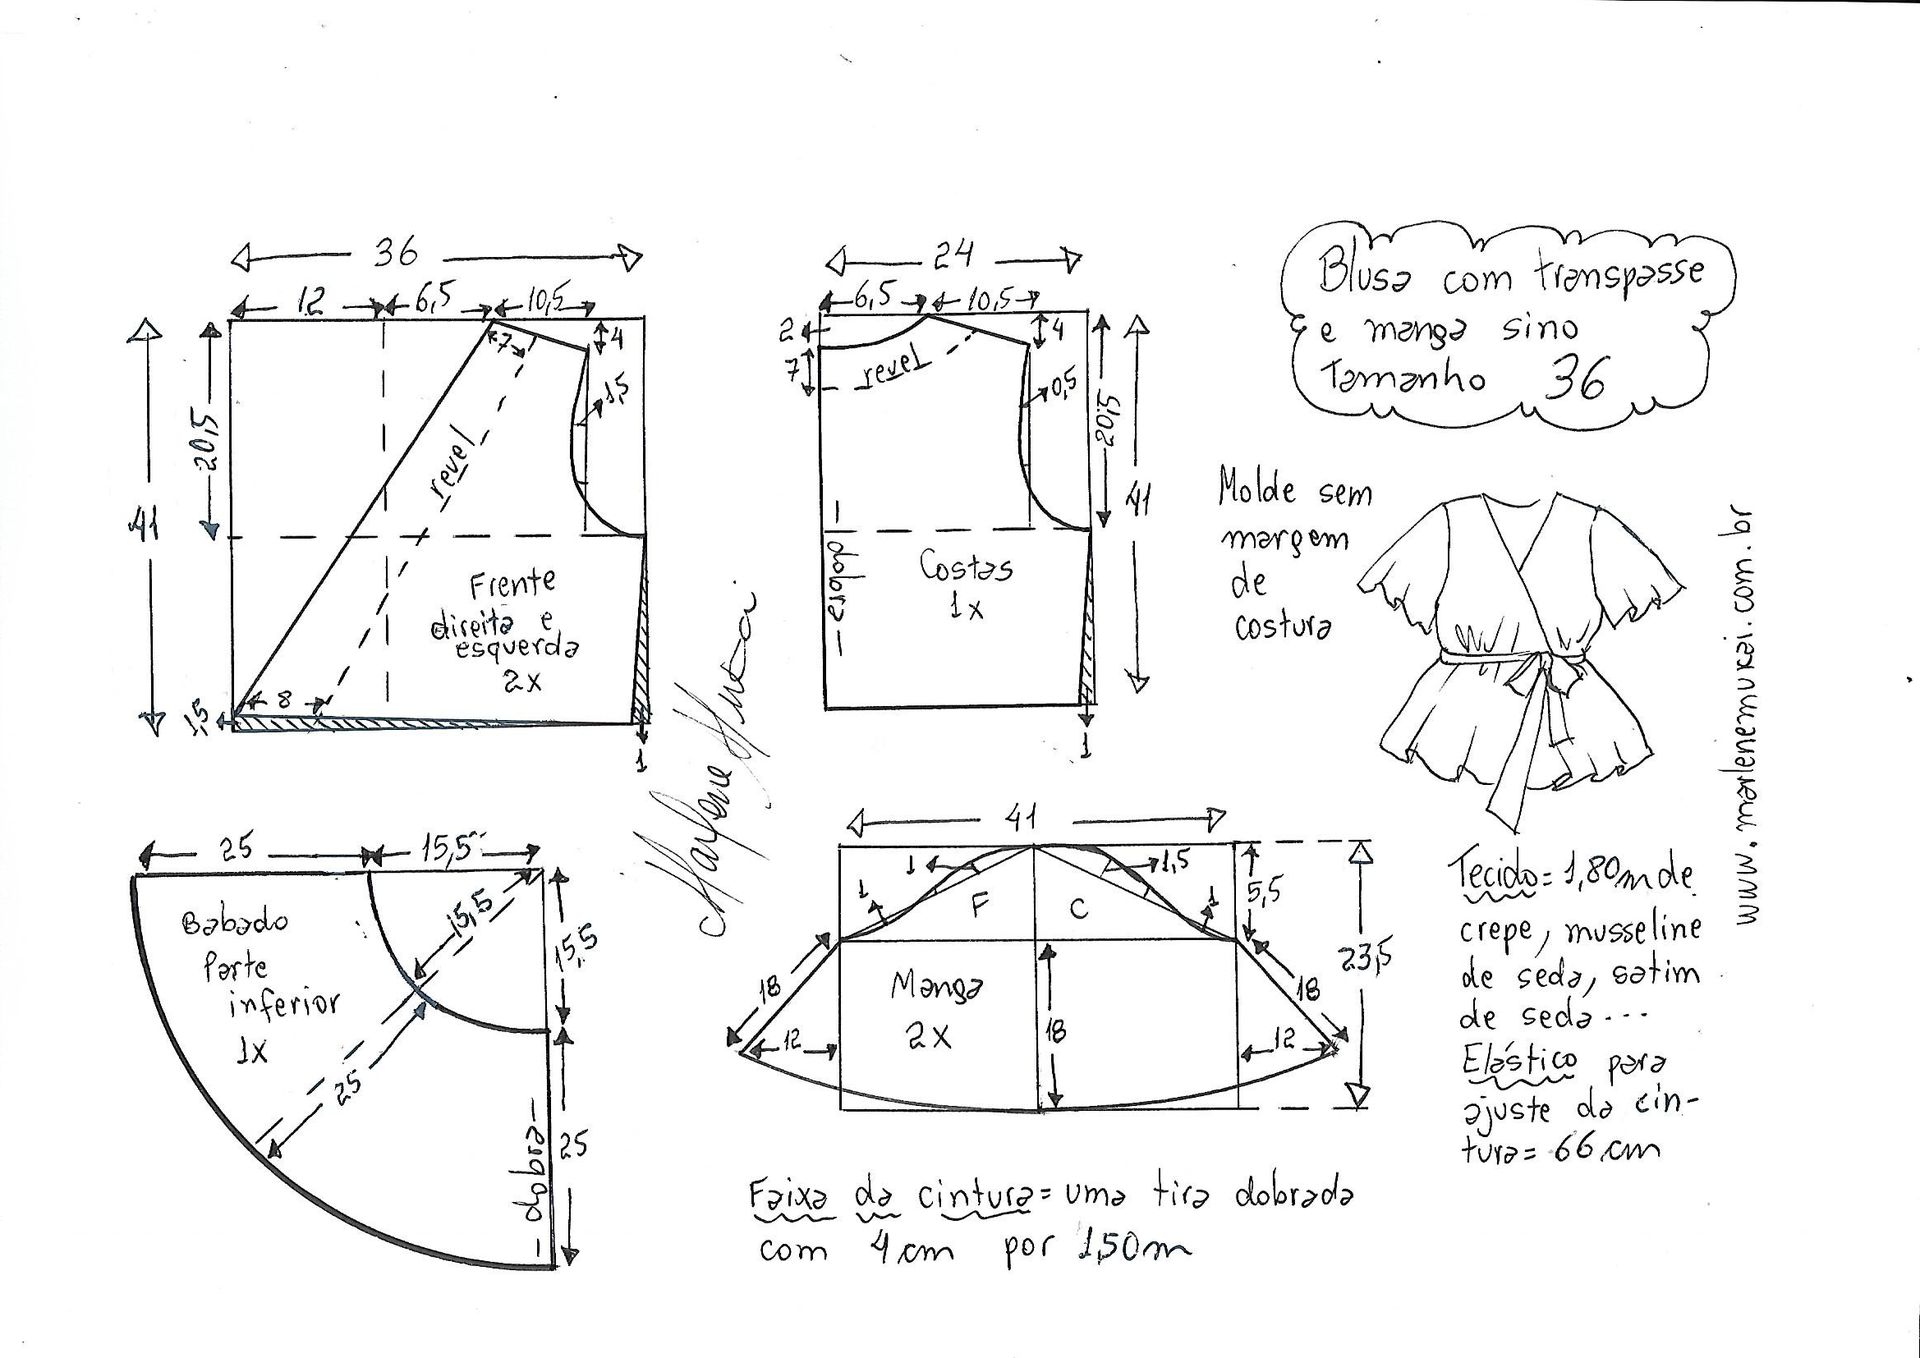 36
12
6,5
10,5
4
7
1,5
20,5
41
revel
Frente
direita e
esquerda
2x
8
1,5
1
24
6,5
10,5
2
4
7
revel
0,5
20,5
41
dobra
Costas
1x
1
Blusa com transpasse
e manga sino
Tamanho 36
Molde sem
margem
de
costura
www.marlenemukai.com.br
Marlene Mukai
25
15,5
Babado
Parte
inferior
1x
15,5
15,5
25
25
dobra
41
1
1,5
1
1
5,5
F
C
23,5
18
Manga
2x
18
18
12
12
Tecido = 1,80m de
crepe, musseline
de seda, satim
de seda...
Elástico para
ajuste da cin-
tura = 66 cm
Faixa da cintura = uma tira dobrada
com 4 cm por 1,50m